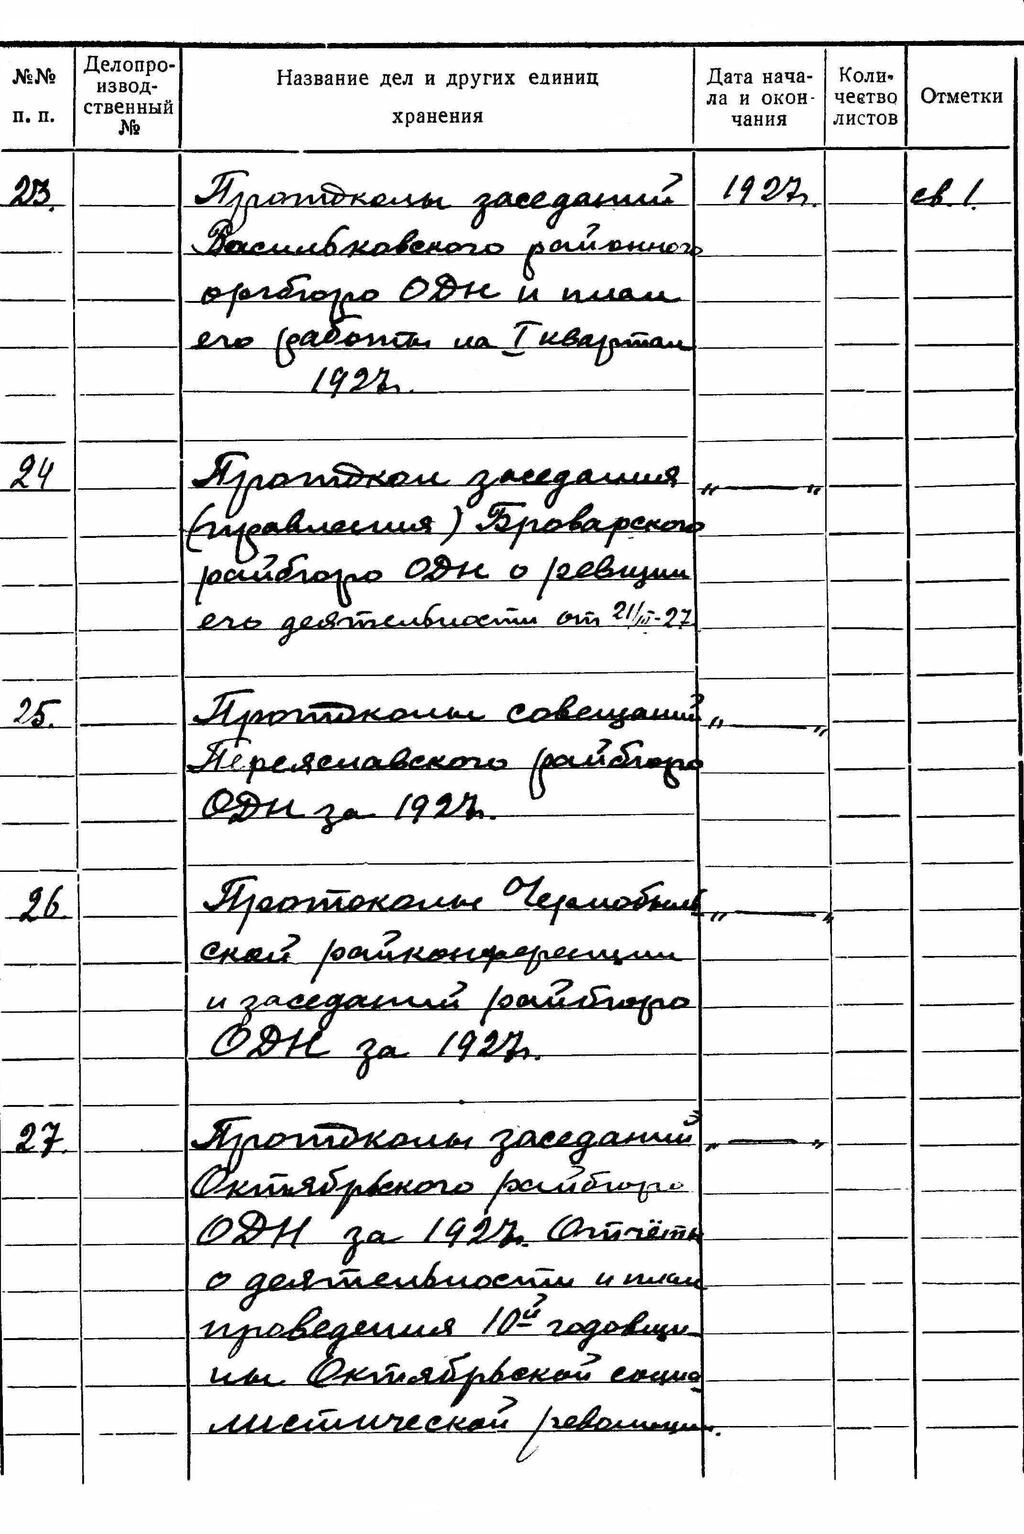 №№ п. п.
Делопро-
извод-
ственный
№
Название дел и других единиц
хранения
Дата нача-
ла и окон-
чания
Коли-
чество
листов
Отметки
23. Протоколы заседаний 1927г. св. 1.
Васильковского районного
оргбюро ОДН и план
его работы на I квартал
1927г.
24 Протокол заседания „ — „
(правления) Броварского
райбюро ОДН о ревизии
его деятельности от 21/III-27
25. Протоколы совещаний „ — „
Переяславского райбюро
ОДН за 1927г.
26. Протоколы Чернобыль „ — „
ской райконференции
и заседаний райбюро
ОДН за 1927г.
27. Протоколы заседаний „ — „
Октябрьского райбюро
ОДН за 1927г. Отчёты
о деятельности и план
проведения 10й годовщи-
ны Октябрьской социа
листической революции.